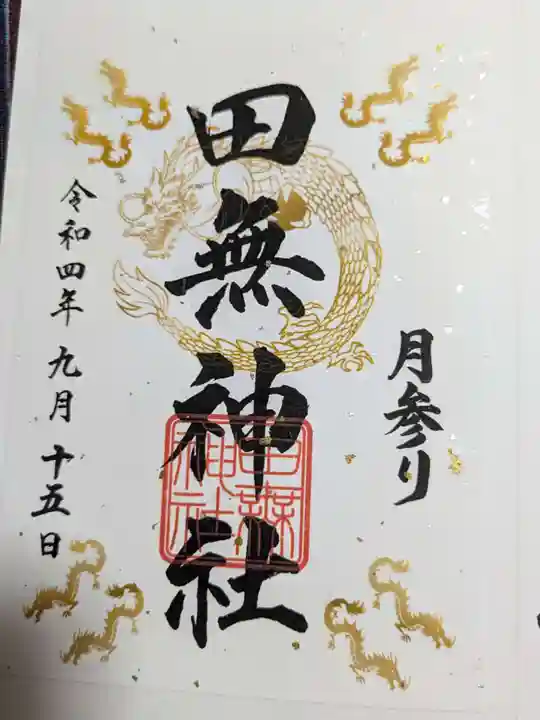 月参り
田無神社
田無神社
令和四年九月十五日